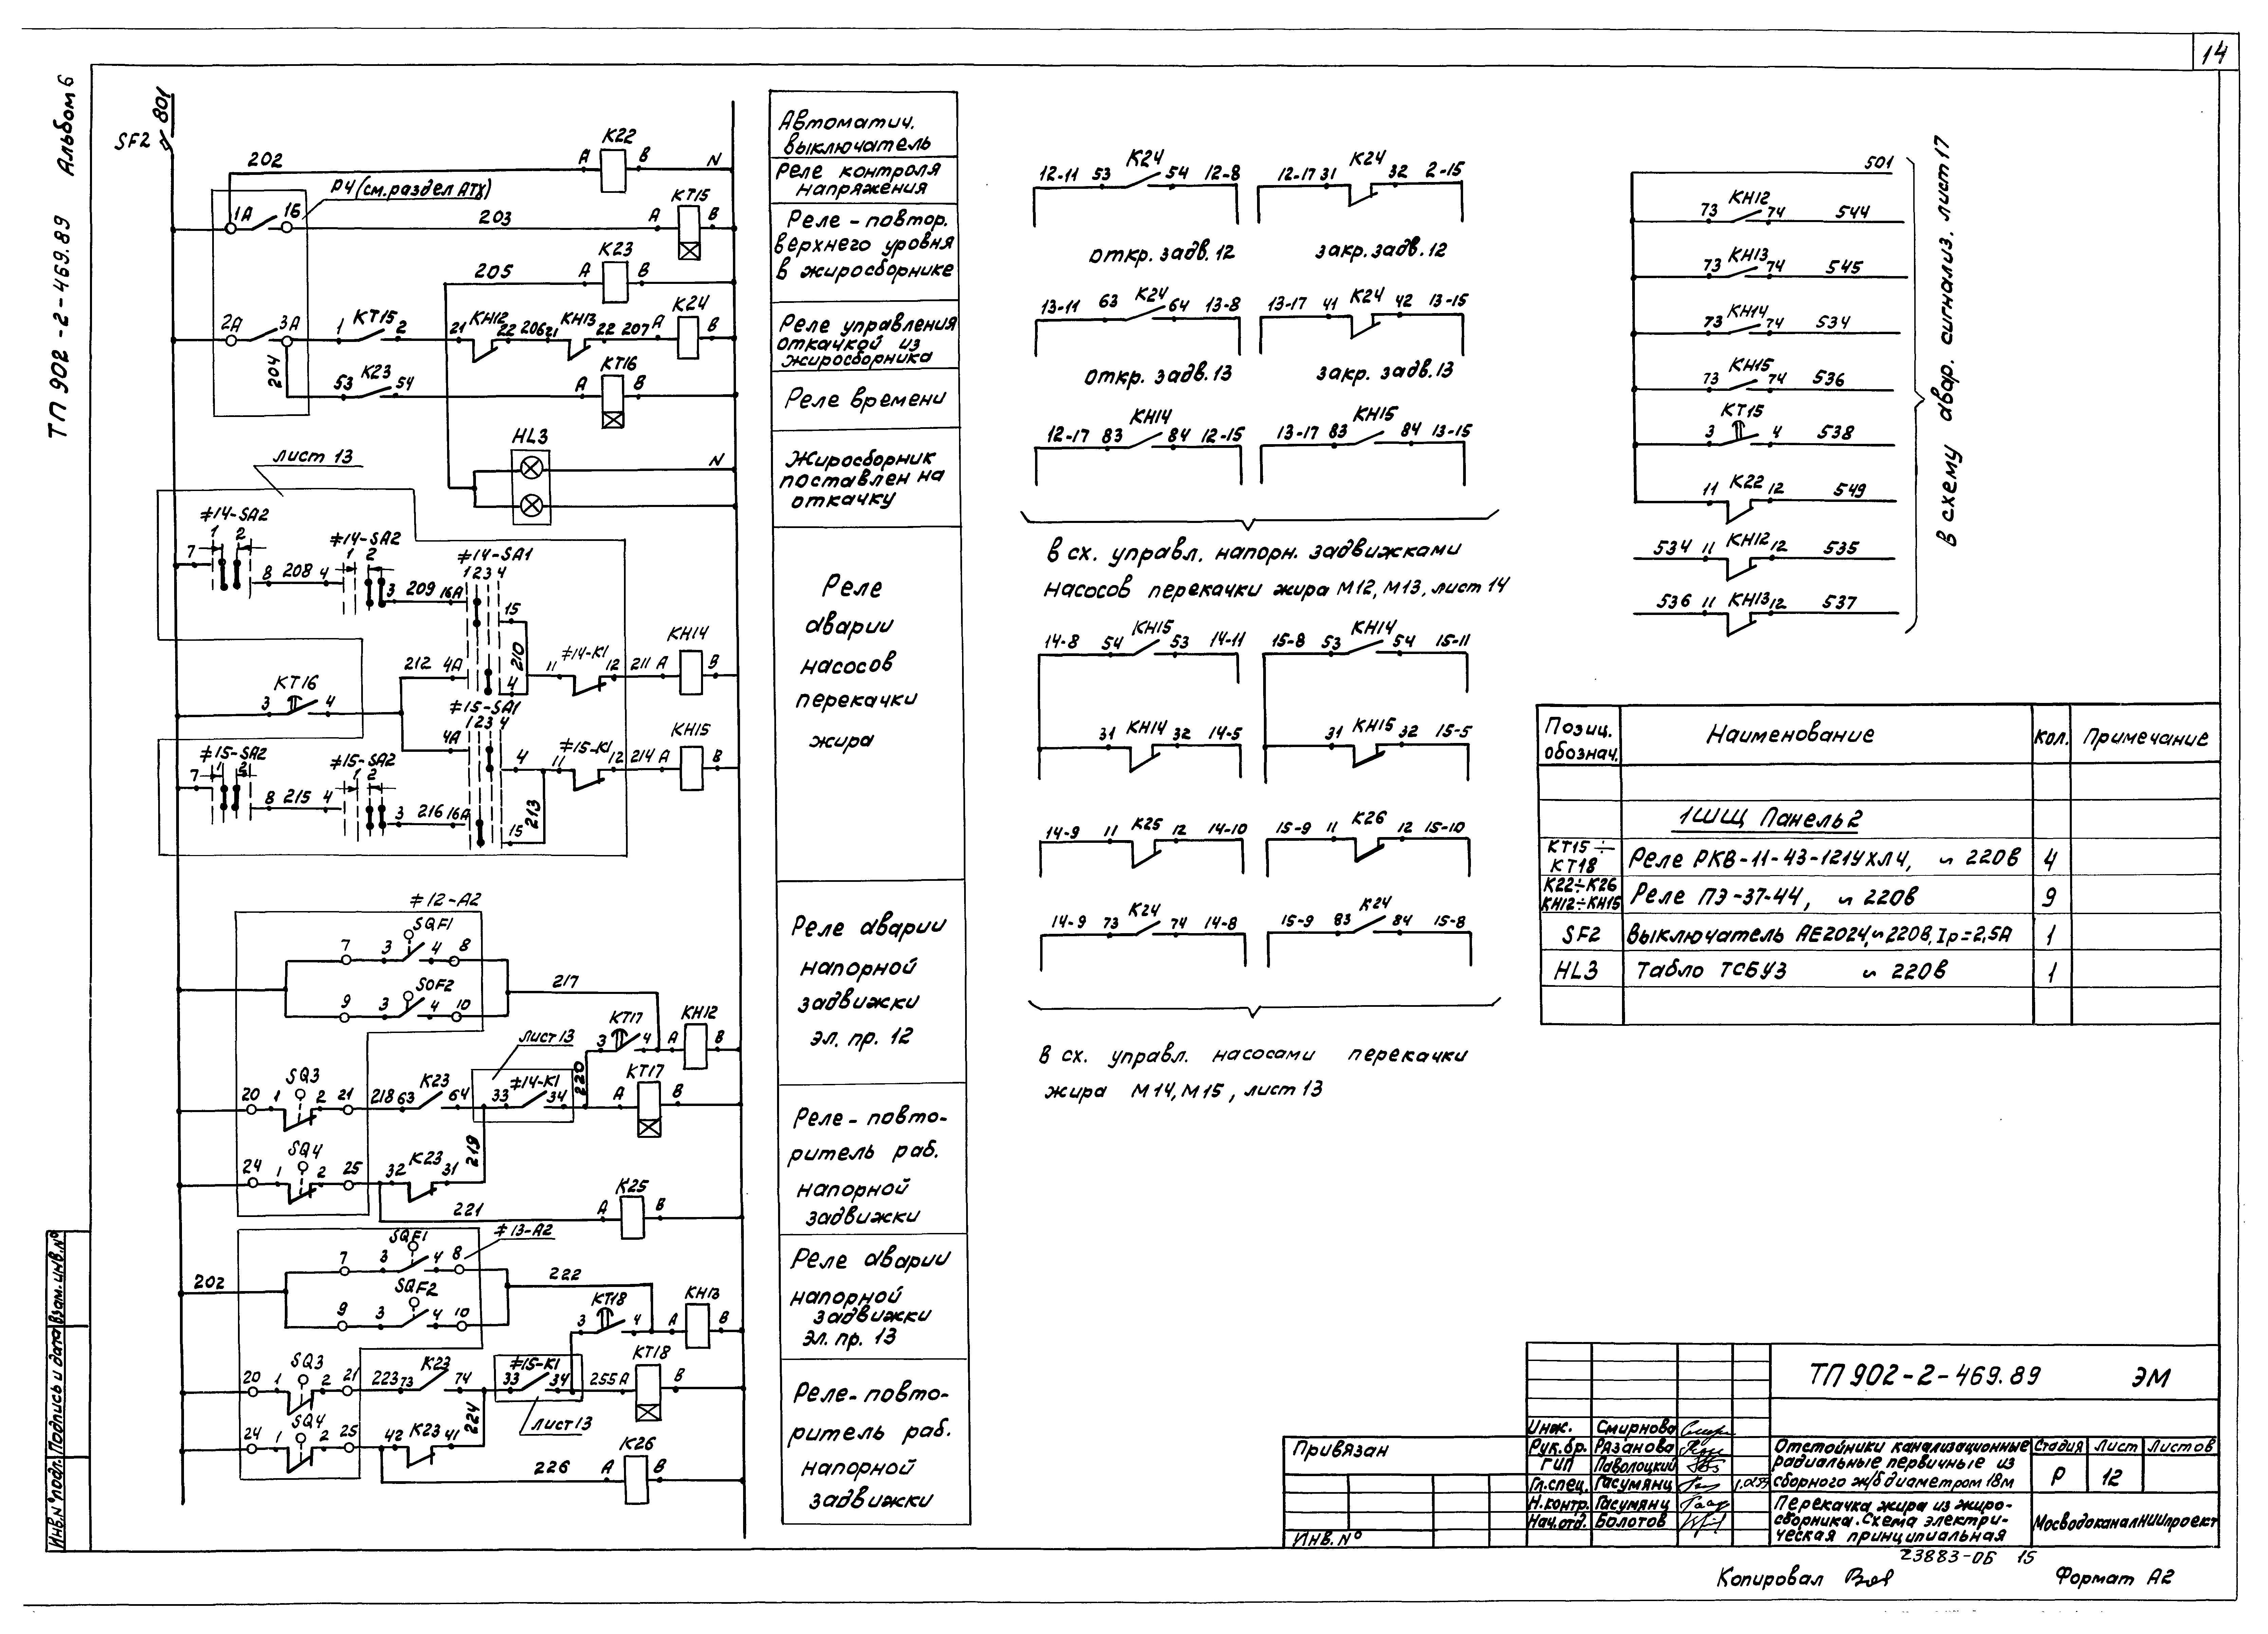 14
ТП 902-2-469.89 Альбом 6
801
SF2
202
А К22 В N
Р4 (см. раздел АТХ)
1А 16 203 А КТ15 В
205 А К23 В
2А 3А 1 КТ15 2 21 КН12 22 206 21 КН13 22 207 А К24 В
204 53 К23 54 А КТ16 В
HL3 N
Лист 13
7 ≠14-SA2 1 2 8 208 4 ≠14-SA2 1 2 3 209 16А ≠14-SA1 1 2 3 4 15
210
КТ16 3 4 212 4А 4 11 ≠14-К1 12 211 А КН14 В
4А ≠15-SA1 1 2 3 4 4 11 ≠15-К1 12 214 А КН15 В
7 ≠15-SA2 1 2 8 215 4 ≠15-SA2 1 2 3 216 16А 15
213
≠12-А2
7 3 SQF1 4 8
9 3 SQF2 4 10
217
3 КТ17 4 А КН12 В
Лист 13
20 1 SQ3 2 21 218 63 К23 64 33 ≠14-К1 34 220 А КТ17 В
24 1 SQ4 2 25 32 К23 31 219
221 А К25 В
≠13-А2
202
7 3 SQF1 4 8
9 3 SQF2 4 10
222
3 КТ18 4 А КН13 В
20 1 SQ3 2 21 223 73 К23 74 33 ≠15-К1 34 255 А КТ18 В
Лист 13
24 1 SQ4 2 25 42 К23 41 224
226 А К26 В
Автоматич.
выключатель
Реле контроля
напряжения
Реле-повтор.
верхнего уровня
в жиросборнике
Реле управления
откачкой из
жиросборника
Реле времени
Жиросборник
поставлен на
откачку
Реле
аварии
насосов
перекачки
жира
Реле аварии
напорной
задвижки
эл. пр. 12
Реле-повто-
ритель раб.
напорной
задвижки
Реле аварии
напорной
задвижки
эл. пр. 13
Реле-повто-
ритель раб.
напорной
задвижки
12-11 53 К24 54 12-8
12-17 31 К24 32 2-15
откр. задв. 12
закр. задв. 12
13-11 63 К24 64 13-8
13-17 41 К24 42 13-15
откр. задв. 13
закр. задв. 13
12-17 83 КН14 84 12-15
13-17 83 КН15 84 13-15
В сх. управл. напорн. задвижками
насосов перекачки жира М12, М13, лист 14
14-8 54 КН15 53 14-11
15-8 53 КН14 54 15-11
31 КН14 32 14-5
31 КН15 32 15-5
14-9 11 К25 12 14-10
15-9 11 К26 12 15-10
14-9 73 К24 74 14-8
15-9 83 К24 84 15-8
В сх. управл. насосами перекачки
жира М14, М15, лист 13
501
73 КН12 74 544
73 КН13 74 545
73 КН14 74 534
73 КН15 74 536
3 КТ15 4 538
11 К22 12 549
534 11 КН12 12 535
536 11 КН13 12 537
В схему авар. сигнализ. лист 17
Позиц. обознач. Наименование Кол. Примечание
1ШЩ Панель 2
КТ15÷КТ18 Реле РКВ-11-43-121УХЛ4, ~ 220В 4
К22÷К26 КН12÷КН15 Реле ПЭ-37-44, ~ 220В 9
SF2 Выключатель АЕ2024, ~220В, Iр=2,5А 1
HL3 Табло ТСБУЗ ~ 220В 1
ТП 902-2-469.89 ЭМ
Инж. Смирнова
Рук.бр. Рязанова
ГИП Паволоцкий
Гл.спец. Гасумянц
Н.контр. Гасумянц
Нач.отд. Болотов
Отстойники канализационные
радиальные первичные из
сборного ж/б диаметром 18м
Стадия Лист Листов
Р 12
Перекачка жира из жиро-
сборника. Схема электри-
ческая принципиальная
МосводоканалНИИпроект
Привязан
Инв. №
23883-06 15
Копировал
Формат А2
Инв.№ подл. Подпись и дата Взам. инв.№